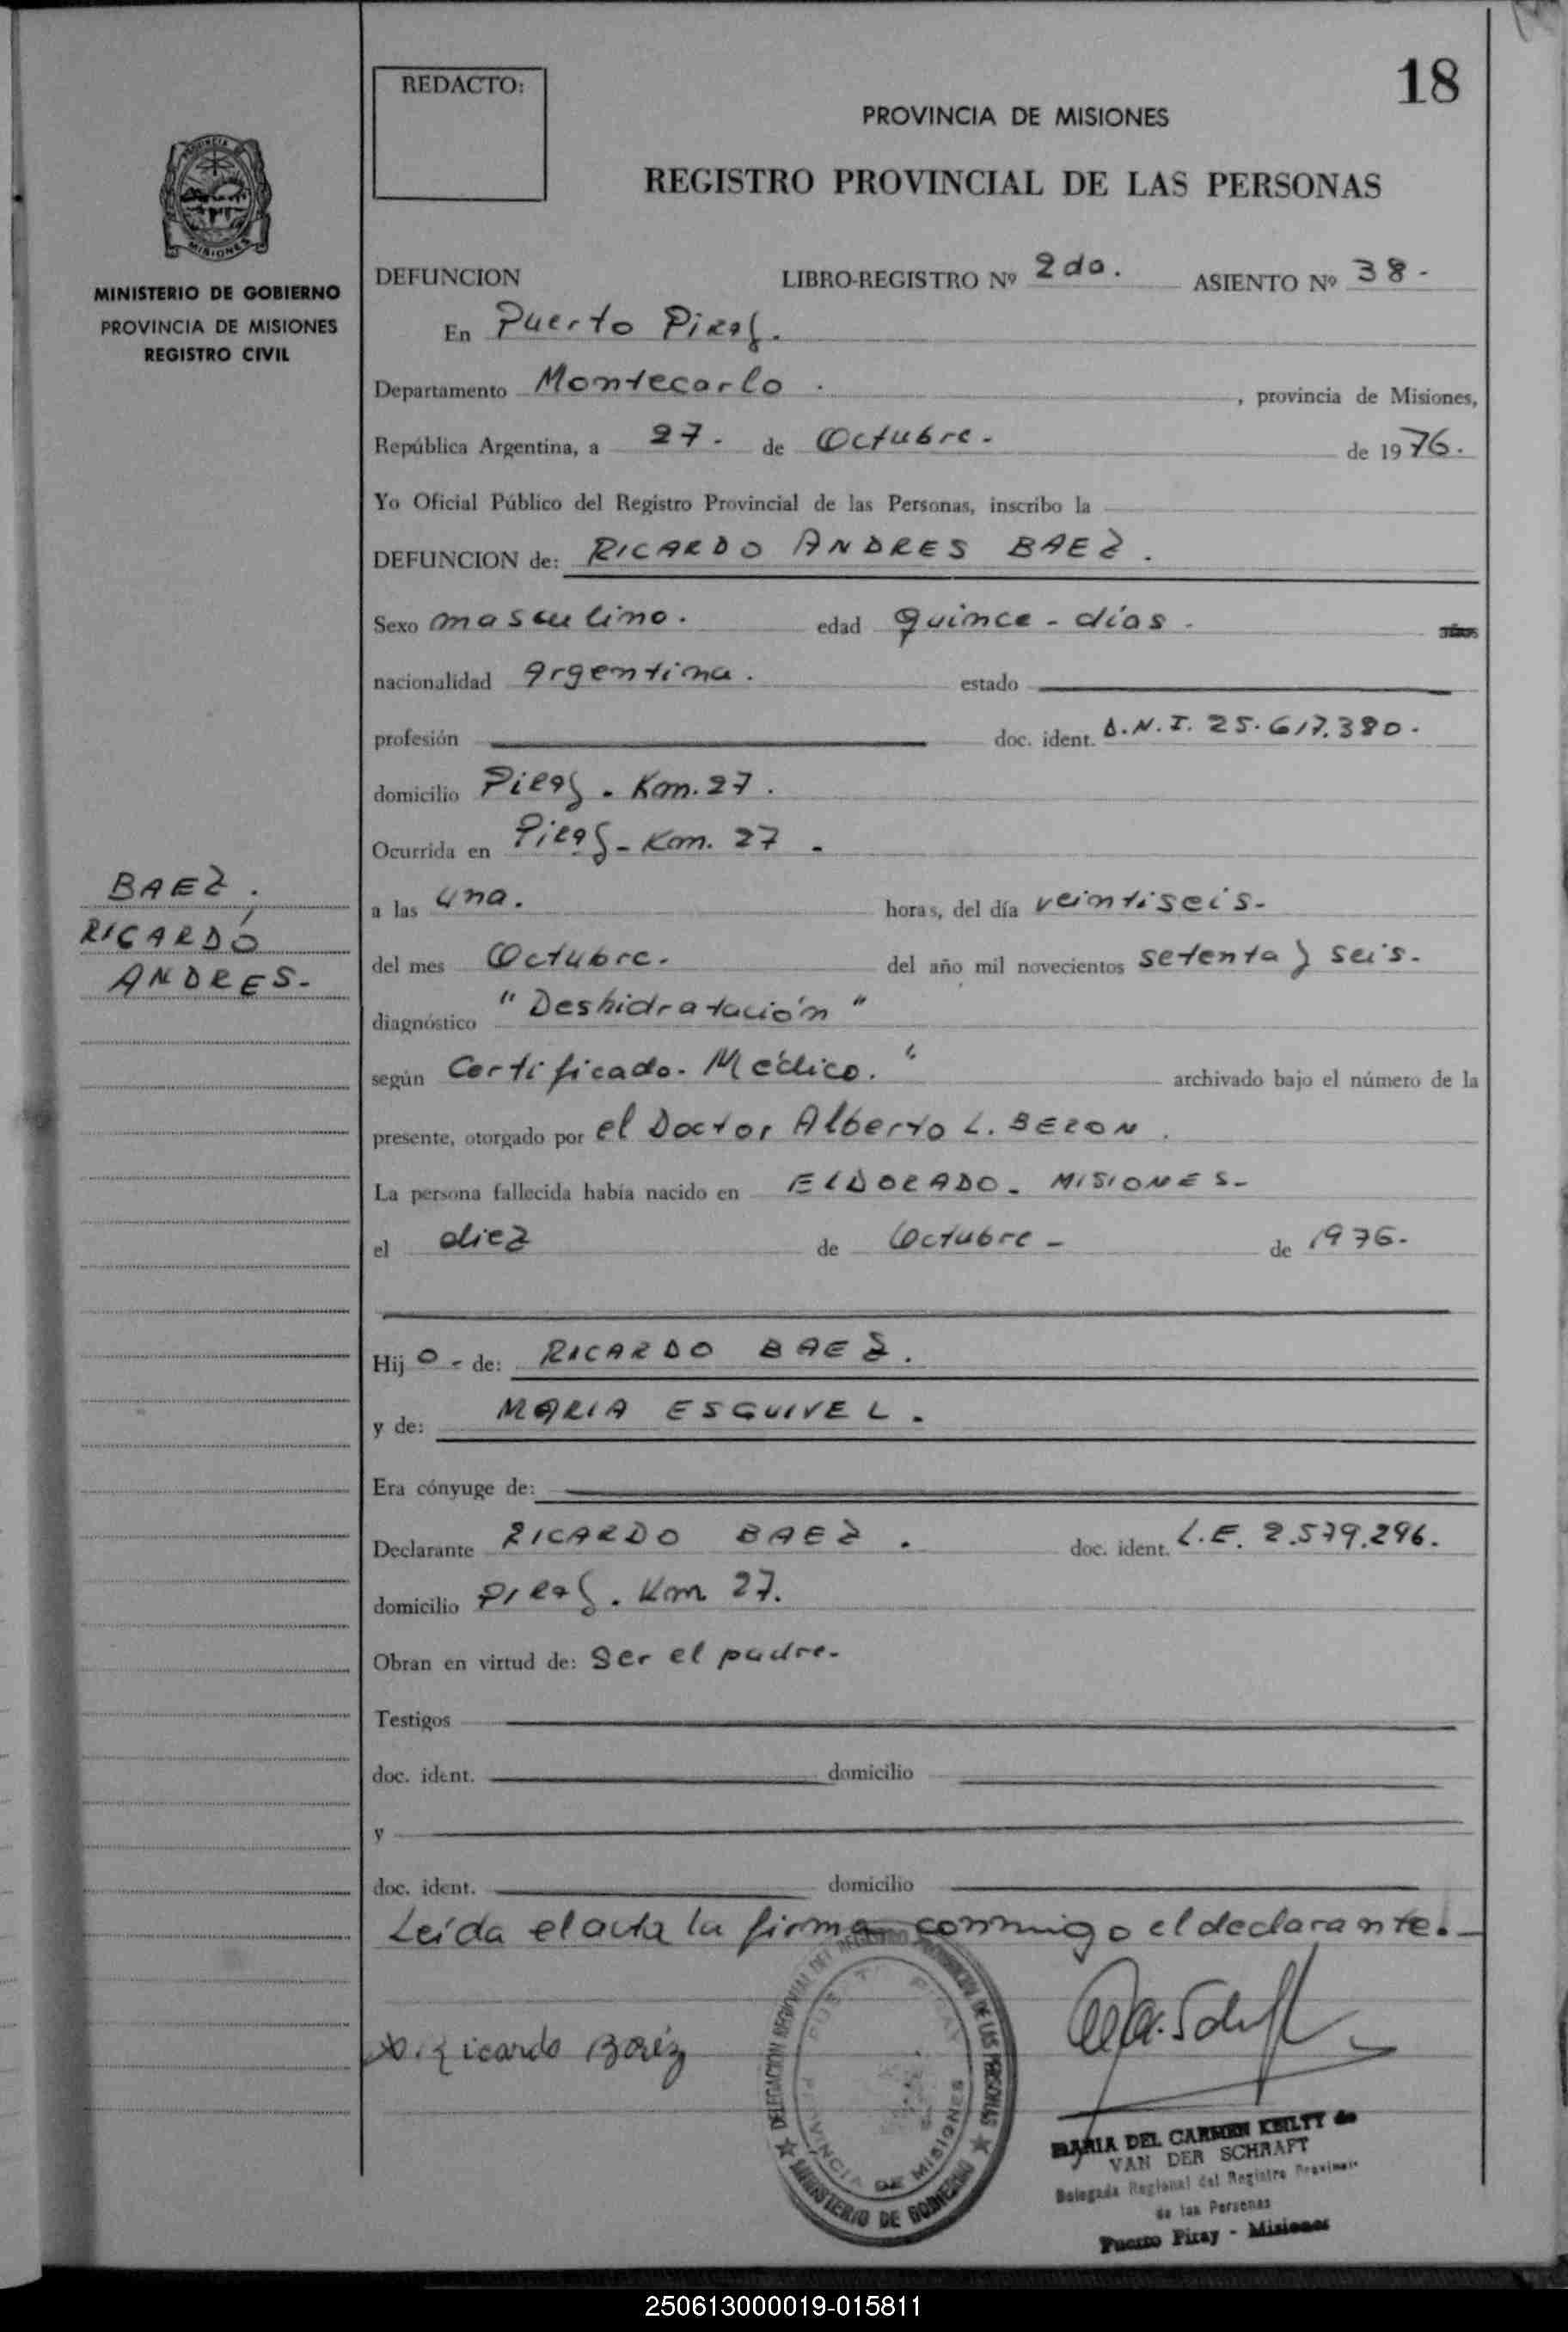 18
REDACTO:
PROVINCIA DE MISIONES
REGISTRO PROVINCIAL DE LAS PERSONAS
MISIONES
MINISTERIO DE GOBIERNO
PROVINCIA DE MISIONES
REGISTRO CIVIL
DEFUNCION LIBRO-REGISTRO Nº 2do. ASIENTO Nº 38-
En Puerto Piray.
Departamento Montecarlo. , provincia de Misiones,
República Argentina, a 27. de Octubre- de 1976.
Yo Oficial Público del Registro Provincial de las Personas, inscribo la
DEFUNCION de: RICARDO ANDRES BAEZ.
Sexo masculino. edad quince-días- años
nacionalidad argentina. estado
profesión doc. ident. D.N.I. 25.617.380.
domicilio Piray. Km. 27.
Ocurrida en Piray-Km. 27-
BAEZ.
RICARDO
ANDRES-
a las una. horas, del día veintiseis-
del mes Octubre. del año mil novecientos setenta y seis-
diagnóstico "Deshidratación"
según Certificado-Médico." archivado bajo el número de la
presente, otorgado por el Doctor Alberto L. BERON.
La persona fallecida había nacido en ELDORADO-MISIONES-
el diez de Octubre- de 1976-
Hijo- de: RICARDO BAEZ.
y de: MARIA ESQUIVEL.
Era cónyuge de:
Declarante RICARDO BAEZ. doc. ident. L.E. 2.579.296.
domicilio Piray. Km 27.
Obran en virtud de: Ser el padre-
Testigos
doc. ident. domicilio
y
doc. ident. domicilio
Leída el acta la firma conmigo el declarante.-
Ricardo Báez
DELEGACION REGIONAL DEL REGISTRO PROVINCIAL DE LAS PERSONAS
PUERTO PIRAY
PROVINCIA DE MISIONES
MINISTERIO DE GOBIERNO
MARIA DEL CARMEN KEILTY de
VAN DER SCHRAFT
Delegada Regional del Registro Provincial
de las Personas
Puerto Piray - Misiones
250613000019-015811